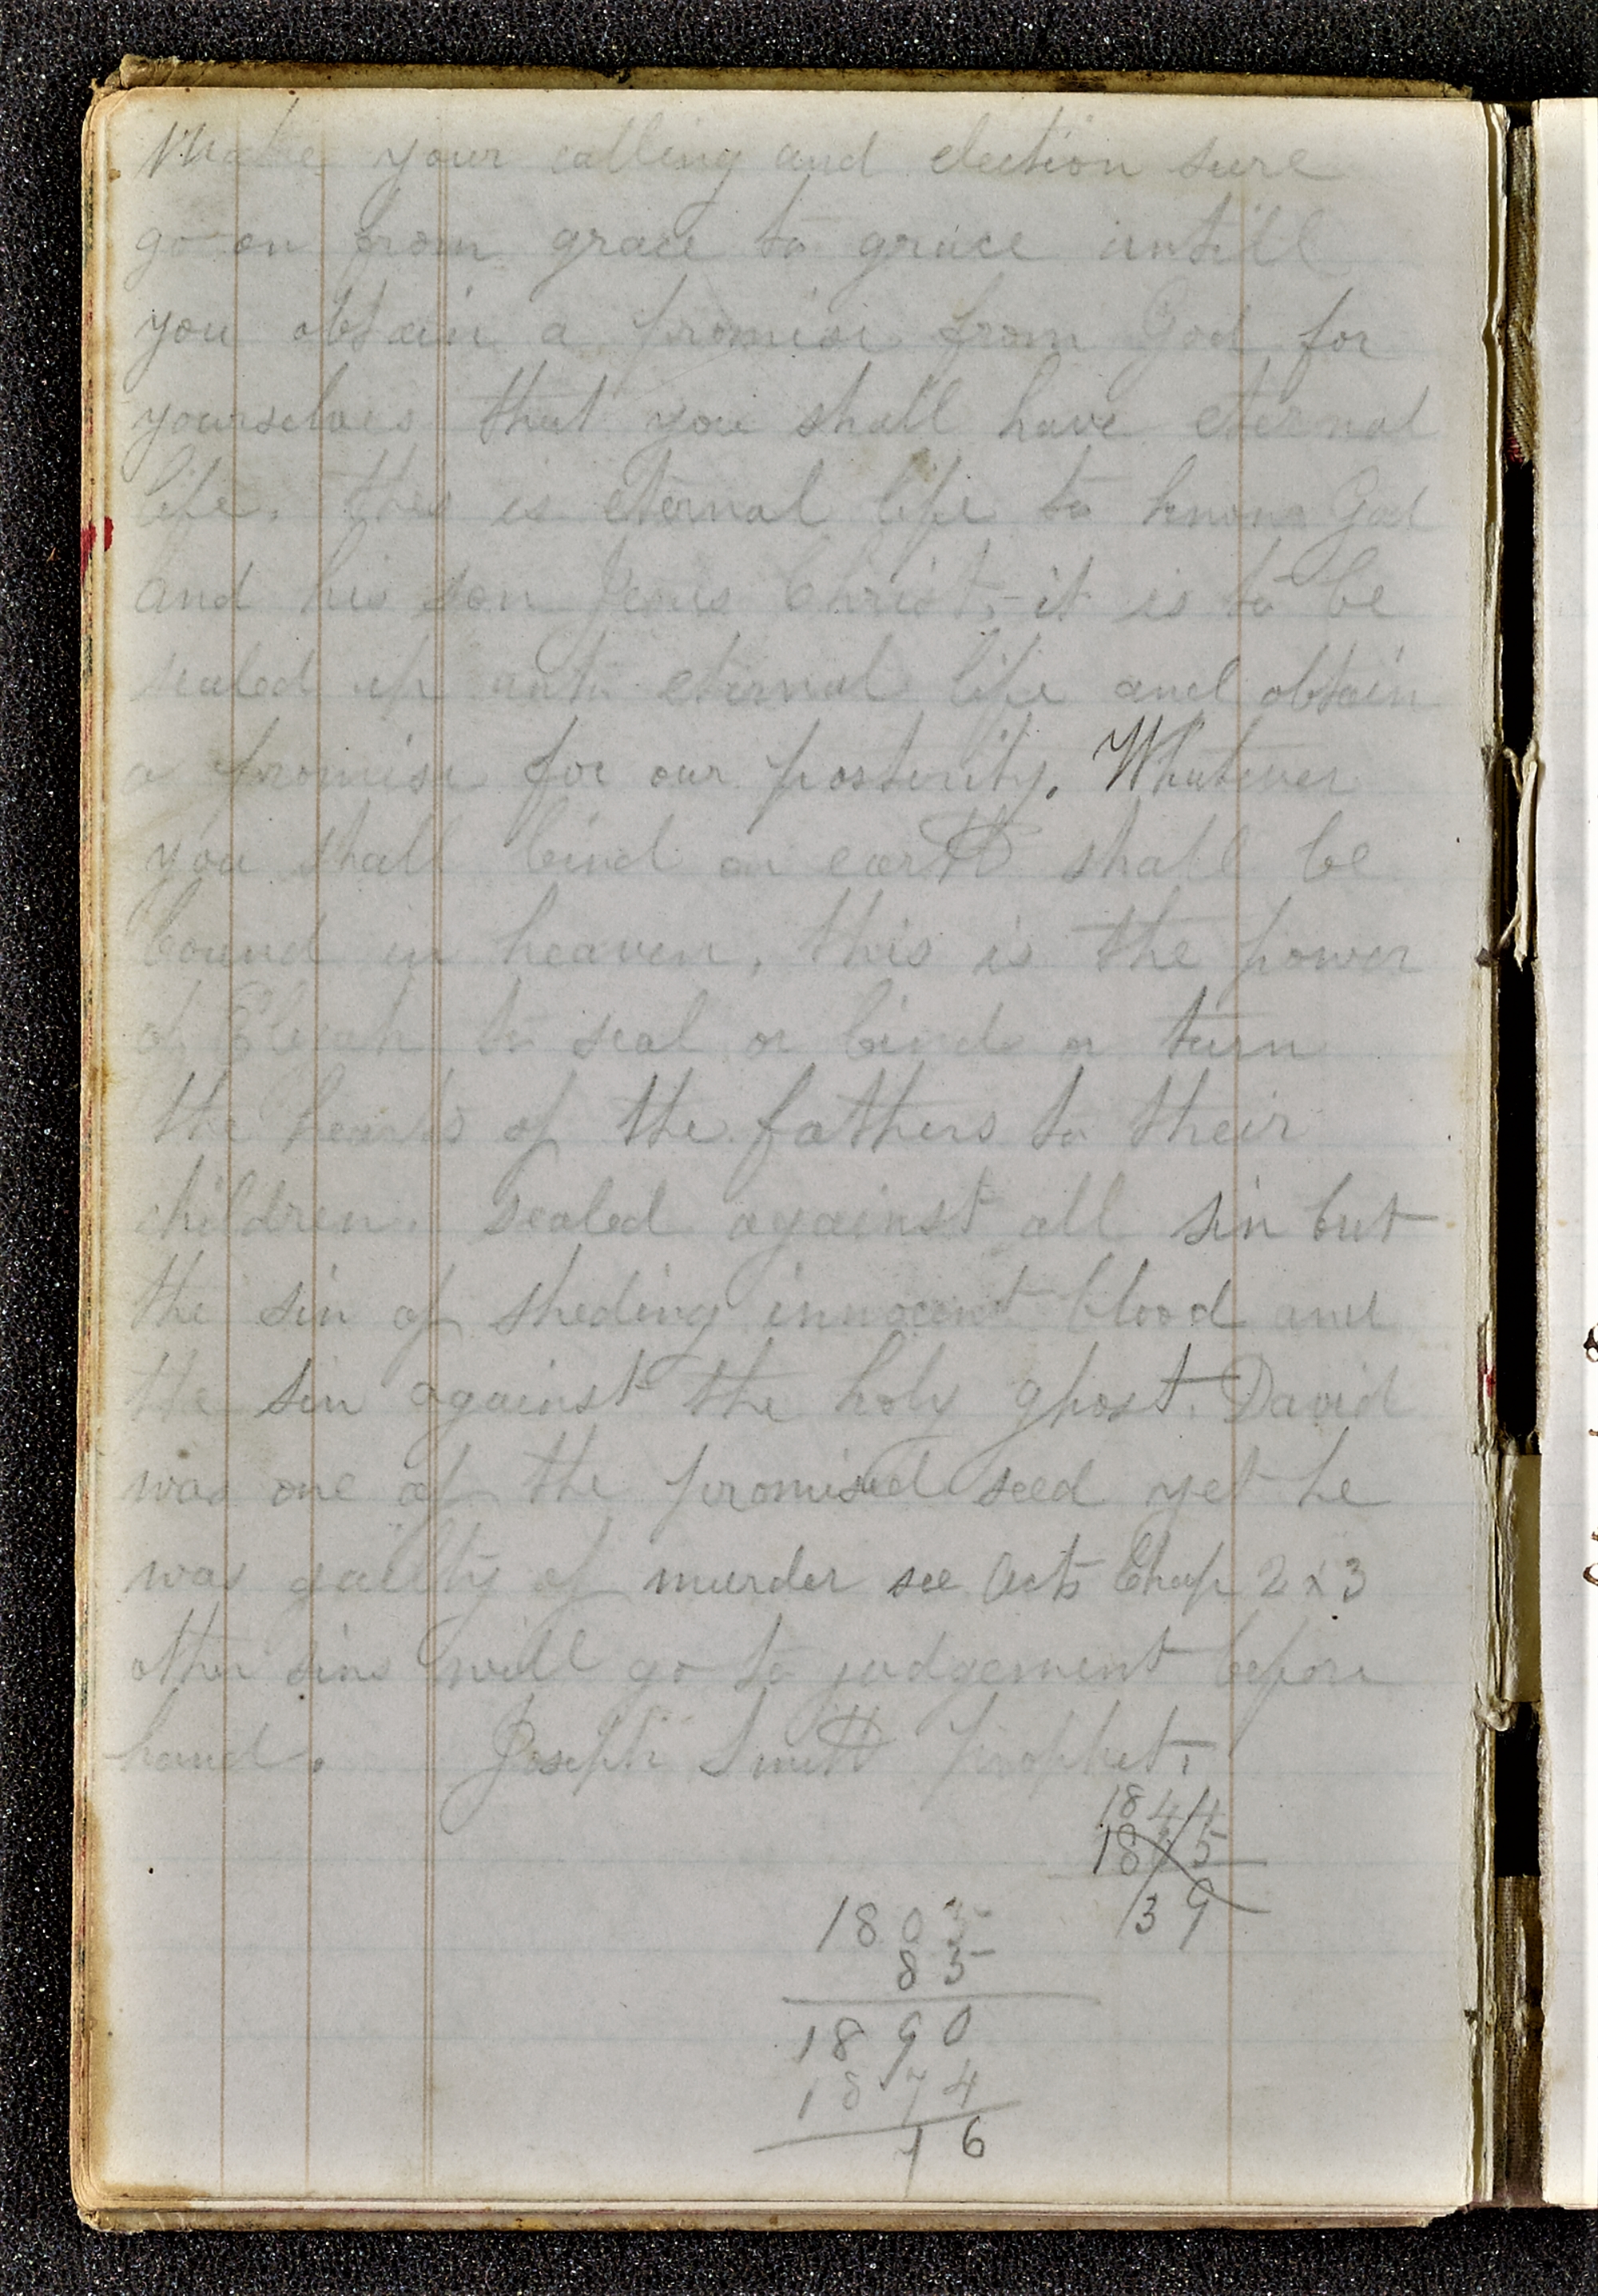 Make your calling and election sure
go on from grace to grace untill
you obtain a promise from God for
yourselves that you shall have eternal
life. this is eternal life to know God
and his son Jesus Christ, - it is to be
sealed up unto eternal life and obtain
a promise for our posterity. Whatever
you shall bind on earth shall be
bound in heaven, this is the power
of Elijah to seal or bind or turn
the hearts of the fathers to their
children. sealed against all sin but
the sin of sheding innocent blood and
the sin against the holy ghost. David
was one of the promised seed yet he
was guilty of murder see Acts Chap 2 x 3
other sins will go to judgement before
hand. Joseph Smith Prophet.
1844
18 5
39
1805
85
1890
1874
16